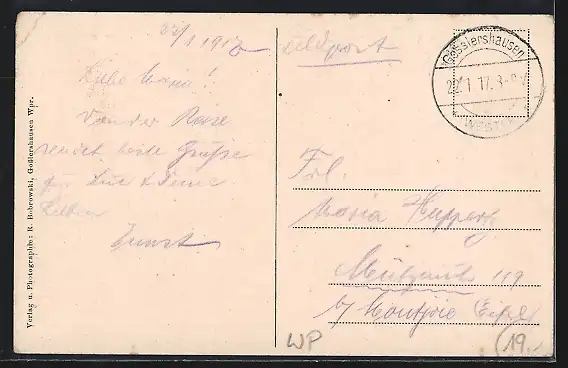 22/1 1917
Feldpost
Liebe Maria!
Von der Reise
sendet beste Grüße
für Dich & Deine
Lieben
Ernst
Frl.
Maria
119
b/ Montjoie Eifel
Goßlershausen
22.1.17. 8-9 V
WESTPR.
Verlag u. Photographie: R. Bobrowski, Goßlershausen Wpr.
WP
(19.-